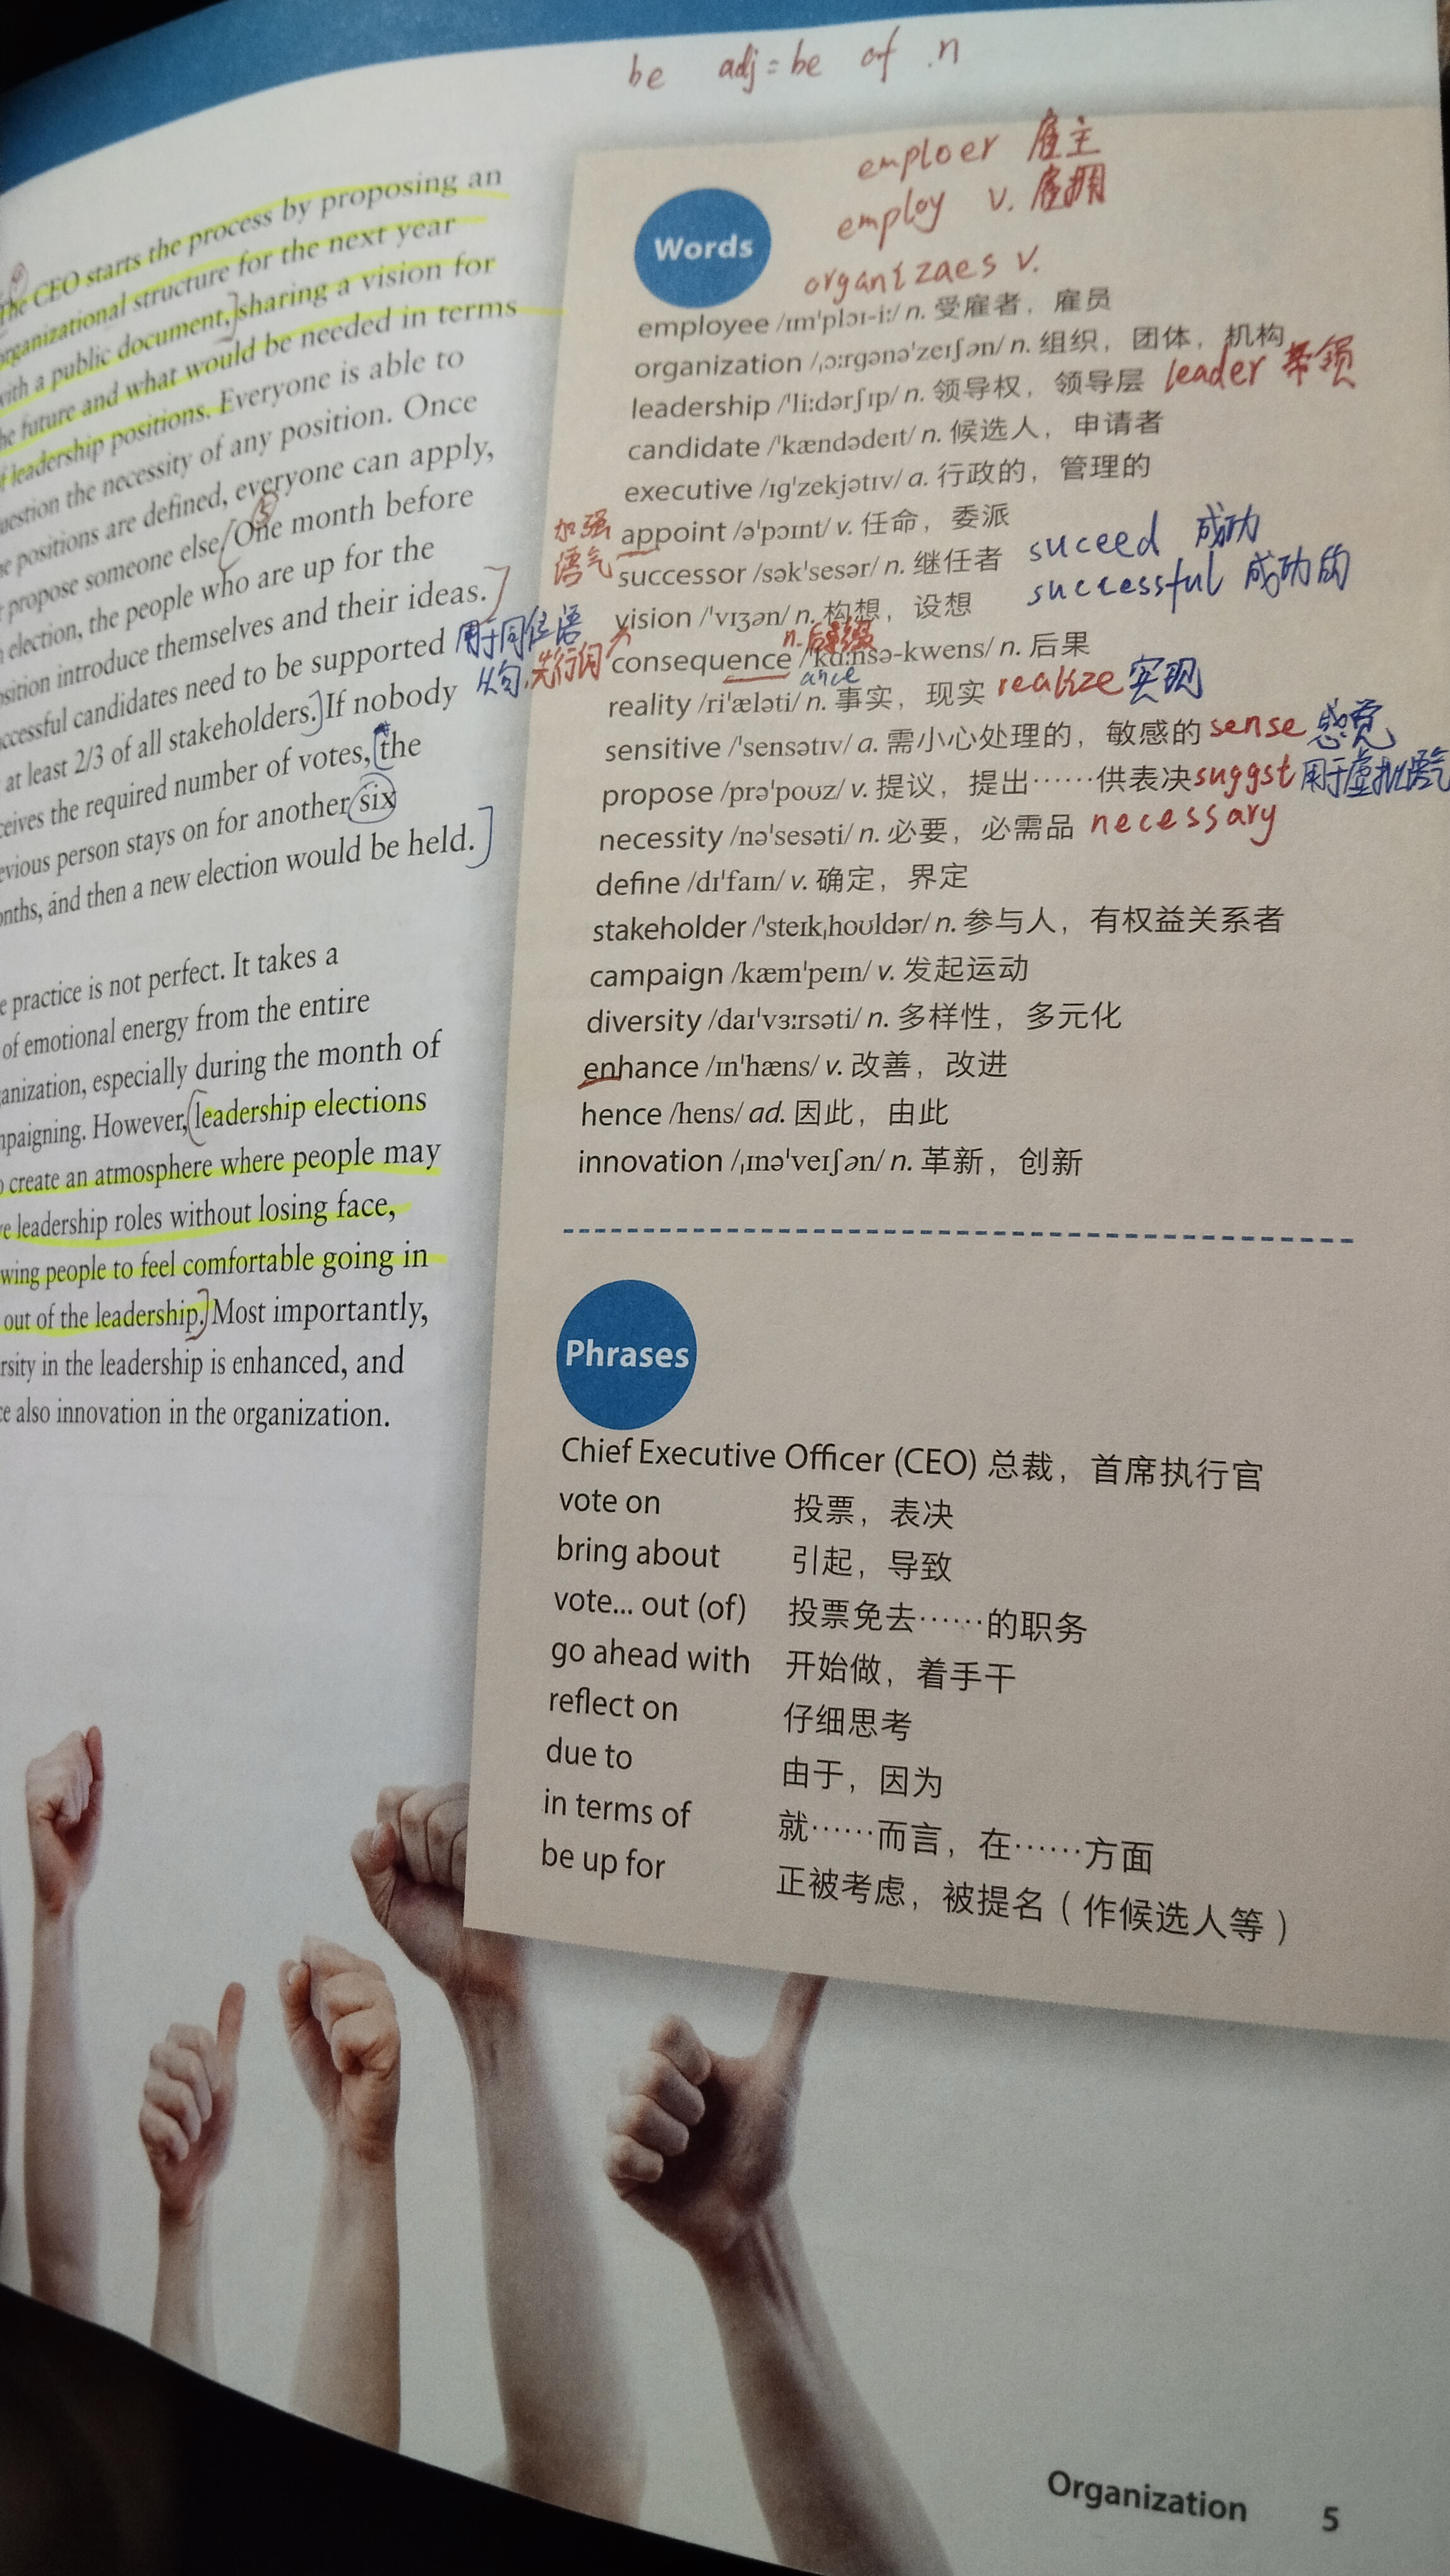 be adj = be of .n
The CEO starts the process by proposing an
organizational structure for the next year
with a public document, sharing a vision for
the future and what would be needed in terms
of leadership positions. Everyone is able to
question the necessity of any position. Once
positions are defined, everyone can apply,
propose someone else. One month before
election, the people who are up for the
position introduce themselves and their ideas.
successful candidates need to be supported
at least 2/3 of all stakeholders. If nobody
receives the required number of votes, the
previous person stays on for another six
months, and then a new election would be held.
practice is not perfect. It takes a
of emotional energy from the entire
organization, especially during the month of
campaigning. However, leadership elections
create an atmosphere where people may
leadership roles without losing face,
wing people to feel comfortable going in
out of the leadership. Most importantly,
rsity in the leadership is enhanced, and
also innovation in the organization.
emploer 雇主
employ v. 雇拥
Words
organizaes v.
employee /ɪmˈplɔɪ-iː/ n. 受雇者，雇员
organization /ˌɔːrgənəˈzeɪʃən/ n. 组织，团体，机构
leadership /ˈliːdərʃɪp/ n. 领导权，领导层 leader 带领
candidate /ˈkændədeɪt/ n. 候选人，申请者
executive /ɪgˈzekjətɪv/ a. 行政的，管理的
加强
语气
appoint /əˈpɔɪnt/ v. 任命，委派
suceed 成功
successor /səkˈsesər/ n. 继任者
successful 成功的
vision /ˈvɪʒən/ n. 构想，设想
用于同位语
从句，先行词
n. 后缀
consequence /ˈkɑːnsə-kwens/ n. 后果
ance
reality /riˈæləti/ n. 事实，现实 realize 实现
sensitive /ˈsensətɪv/ a. 需小心处理的，敏感的 sense 感觉
propose /prəˈpoʊz/ v. 提议，提出……供表决 suggst 用于虚拟语气
necessity /nəˈsesəti/ n. 必要，必需品 necessary
define /dɪˈfaɪn/ v. 确定，界定
stakeholder /ˈsteɪkˌhoʊldər/ n. 参与人，有权益关系者
campaign /kæmˈpeɪn/ v. 发起运动
diversity /daɪˈvɜːrsəti/ n. 多样性，多元化
enhance /ɪnˈhæns/ v. 改善，改进
hence /hens/ ad. 因此，由此
innovation /ˌɪnəˈveɪʃən/ n. 革新，创新
Phrases
Chief Executive Officer (CEO) 总裁，首席执行官
vote on 投票，表决
bring about 引起，导致
vote... out (of) 投票免去……的职务
go ahead with 开始做，着手干
reflect on 仔细思考
due to 由于，因为
in terms of 就……而言，在……方面
be up for 正被考虑，被提名（作候选人等）
Organization 5